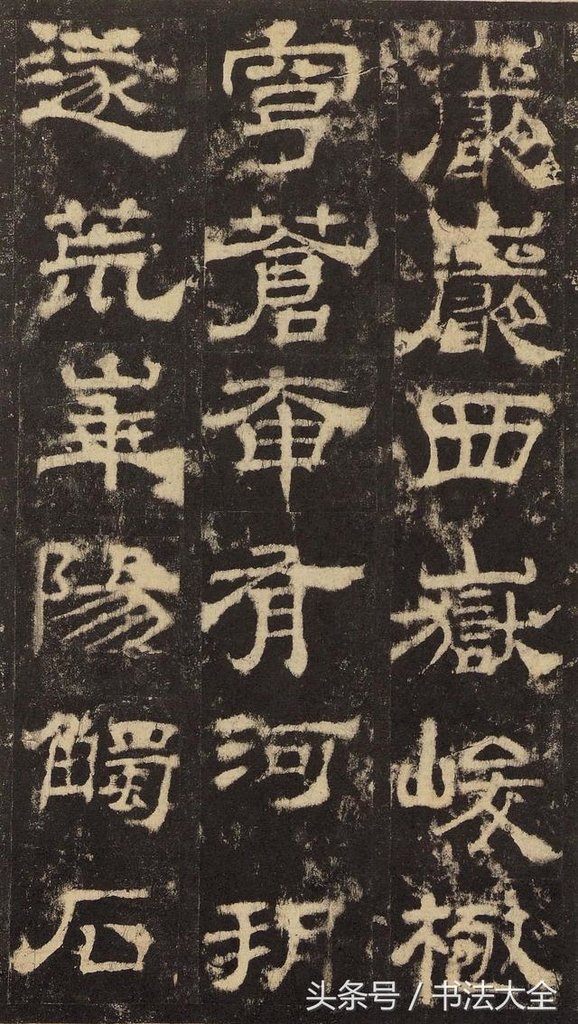 巖巖西嶽峻極
穹蒼奄有河朔
遂荒崋陽觸石
头条号 / 书法大全